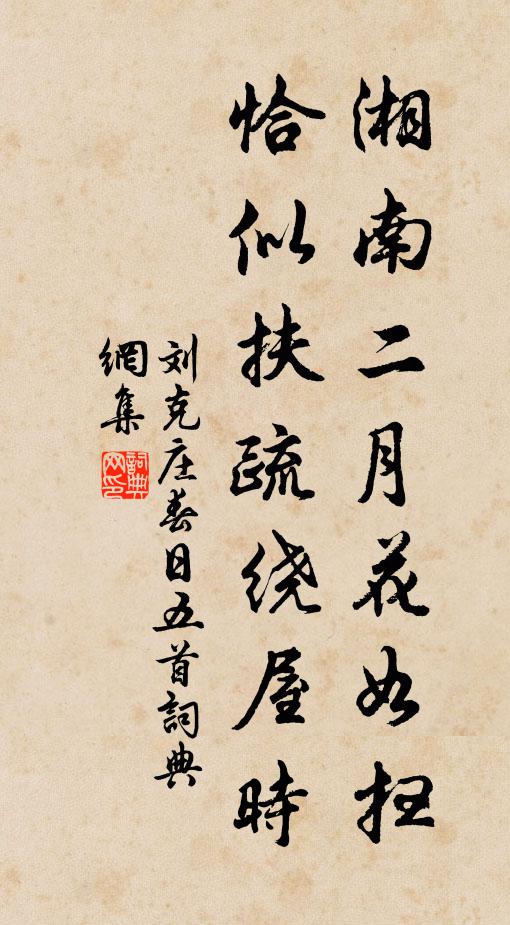 湘南二月花如扫
恰似扶疏绕屋時
刘克庄春日五首詞典
網集
詞典网印